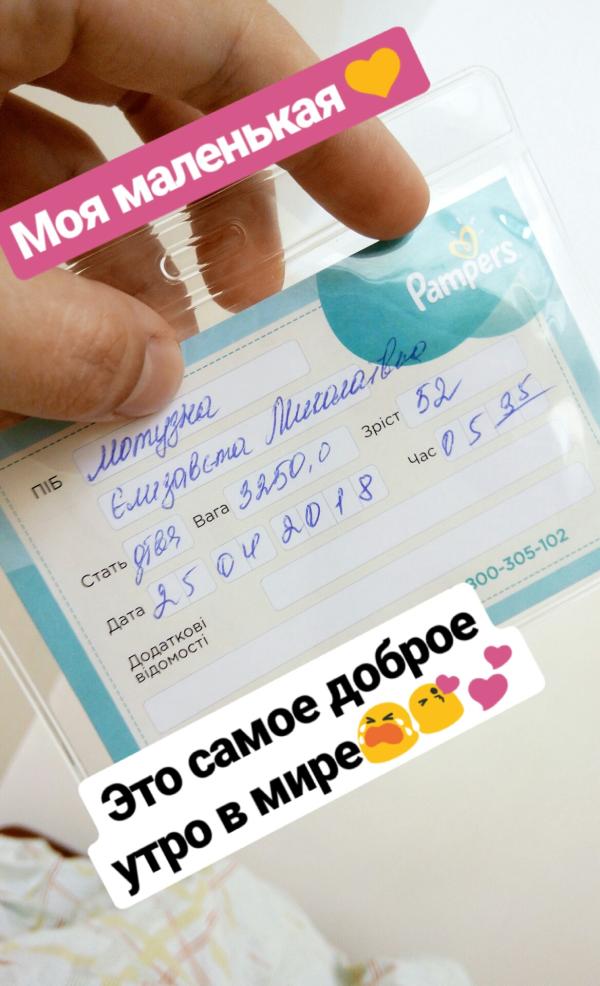 Моя маленькая 💛
Pampers
ПІБ Мотузна
Єлизавета Миколаївна
Стать дівч Вага 3250,0 Зріст 52
Дата 25 04 2018 Час 05 35
Додаткові
відомості
800-305-102
Это самое доброе
утро в мире😭😘💕